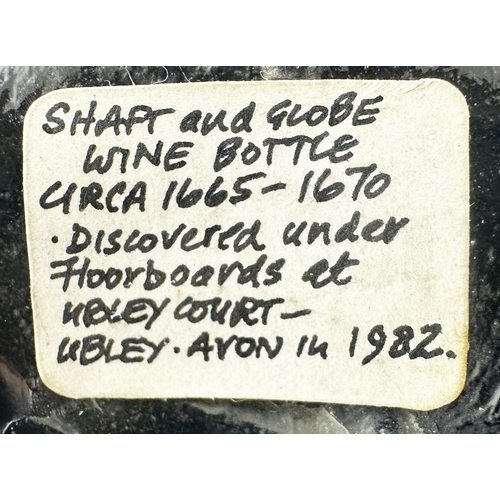 SHAFT and GLOBE
WINE BOTTLE
CIRCA 1665-1670
· Discovered under
floorboards at
UBLEY COURT-
UBLEY. AVON in 1982.